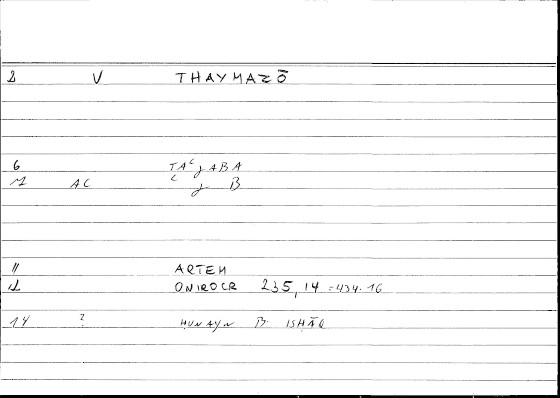 2 V THAYMAZŌ
6 TAʿǧABA
7 AC ʿ ǧ B
11 ARTEM
12 ONIROCR 235, 14 = 434. 16
14 ? ḤUNAYN B. ISḤĀQ